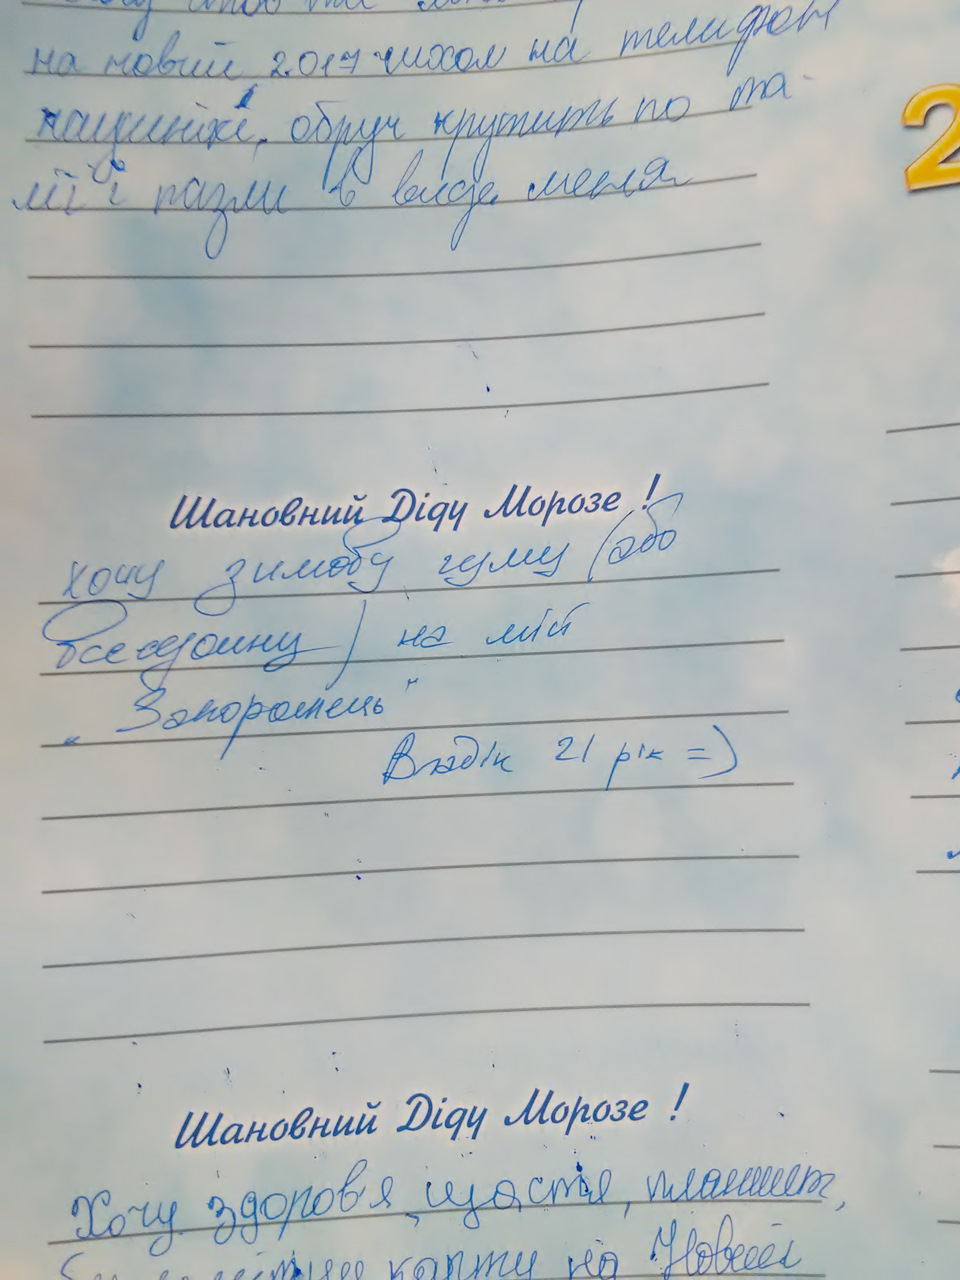 на новий 2017 чихол на телифон
наушнікі, обруч крутить по та-
лії і пазли в виде меня
2
Шановний Діду Морозе !
хочу зимову гуму (або
всесезонну) на мій
„Запорожець"
Владік 21 рік =)
Шановний Діду Морозе !
Хочу здоров'я, щастя, планшет,
карту на Новий